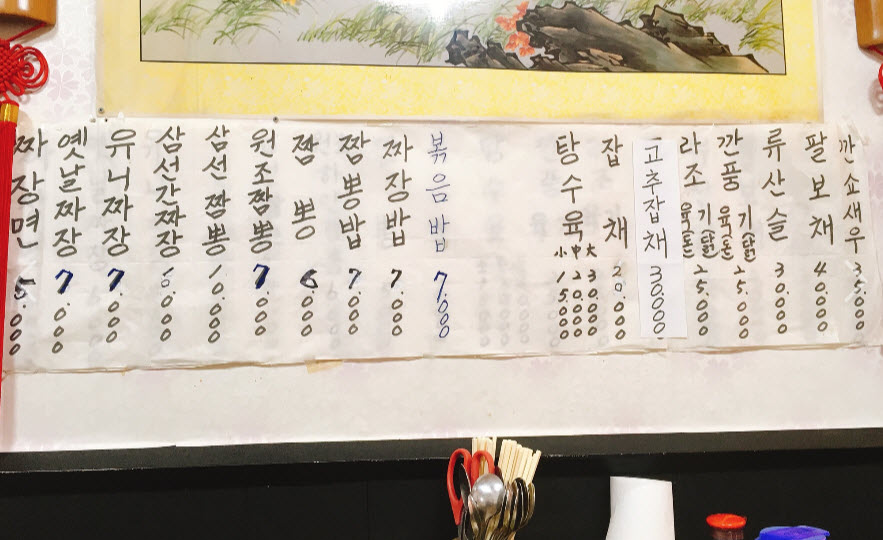 짜장면 5.000
옛날짜장 7.000
유니짜장 7.000
삼선간짜장 10.000
삼선짬뽕 10.000
원조짬뽕 7.000
짬뽕 6.000
짬뽕밥 7.000
짜장밥 7.000
볶음밥 7.000
탕수육 小 15.000 中 20.000 大 30.000
잡채 20.000
고추잡채 30000
라조 육(돈) 기(닭) 25.000
깐풍 육(돈) 기(닭) 25.000
류산슬 30.000
팔보채 40.000
깐쇼새우 35.000